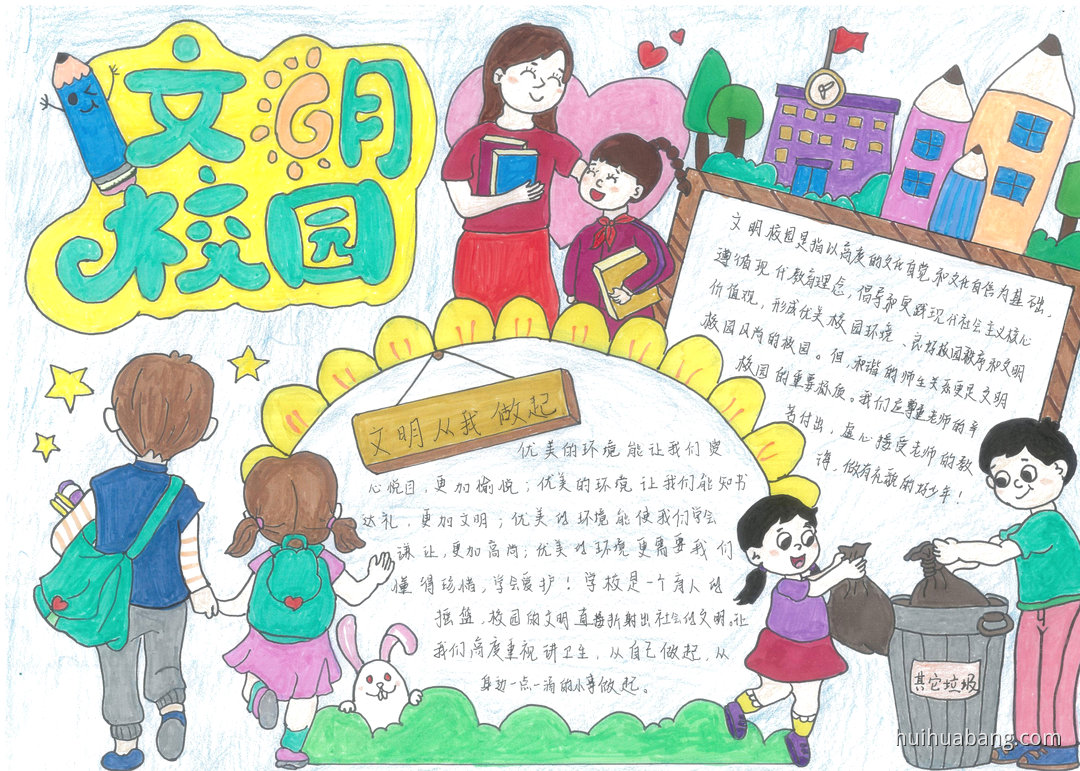 文明
校园
文明校园是指以高度的文化自觉和文化自信为基础，
遵循现代教育理念，倡导和实践现代社会主义核心
价值观，形成优美校园环境、良好校园秩序和文明
校园风尚的校园。但，和谐的师生关系更是文明
校园的重要标质。我们应尊重老师的辛
苦付出，虚心接受老师的教
诲，做有礼貌的好少年！
文明从我做起
优美的环境能让我们更
心悦目，更加愉悦；优美的环境让我们能知书
达礼，更加文明；优美的环境能使我们学会
谦让，更加高尚；优美的环境更需要我们
懂得珍惜，学会爱护！学校是一个育人的
摇篮，校园的文明直接折射出社会的文明。让
我们高度重视讲卫生，从自己做起，从
身边一点一滴的小事做起。
其它垃圾
huihuabang.com